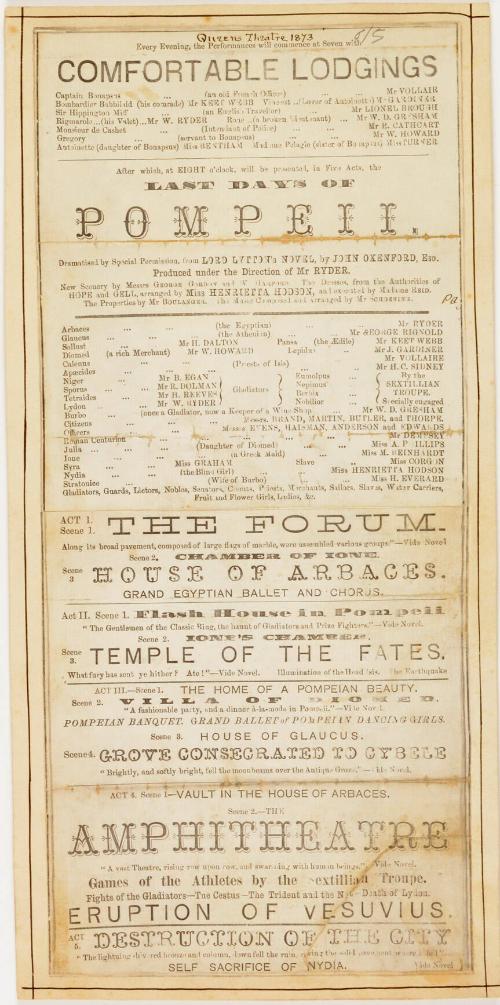 Queens Theatre 1873 8/5
Every Evening, the Performances will commence at Seven with
COMFORTABLE LODGINGS
Captain Bonapsus ... (an old French Officer) ... Mr VOLLAIR
Bombardier Babbilard (his comrade) Mr KEET WEBB Vincent ... (Lover of Antoinette) Mr GARDINER
Sir Hippington Miff ... (an English Traveller) ... Mr LIONEL BROUGH
Rigmarole...(his Valet)...Mr W. RYDER ... (a broken Lieutenant) ... Mr W. D. GRESHAM
Monsieur de Cashet ... (Intendant of Police) ... Mr E. CATHCART
Gregory ... (servant to Bonapsus) ... Mr W. HOWARD
Antoinette (daughter of Bonapsus) Miss BENTHAM Madame Pelagie (sister of Bonapsus) Miss TURNER
After which, at EIGHT o'clock, will be presented, in Five Acts, the
LAST DAYS OF
POMPEII.
Dramatised by Special Permission, from LORD LYTTON'S NOVEL, by JOHN OXENFORD, Esq.
Produced under the Direction of Mr RYDER.
New Scenery by Messrs GEORGE GORDON and W. HARFORD. The Dresses, from the Authorities of
HOPE and GELL, arranged by Miss HENRIETTA HODSON, and executed by Madame REID.
The Properties by Mr BOULANGER. The Music Composed and arranged by Mr SCHOENING.
Pa
Arbaces ... (the Egyptian) ... Mr RYDER
Glaucus ... (the Athenian) ... Mr GEORGE RIGNOLD
Sallust ... Mr H. DALTON Pansa (the Ædile) Mr KEET WEBB
Diomed (a rich Merchant) Mr W. HOWARD Lepidus ... Mr J. GARDINER
Calenus ... (Priests of Isis) ... Mr VOLLAIRE
Apæcides ... Mr H. C. SIDNEY
Niger ... Mr B. EGAN Eumolpus By the
Sporus ... Mr R. DOLMAN Gladiators Nepimus SEXTILLIAN
Tetraides ... Mr H. REEVES Berbix TROUPE.
Lydon ... Mr W. RYDER Nobilior Specially engaged
Burbo ... (once a Gladiator, now a Keeper of a Wine Shop) Mr W. D. GRESHAM
Citizens ... Messrs. BRAND, MARTIN, BUTLER, and THORPE.
Officers ... Messrs EVENS, HAISMAN, ANDERSON and EDWARDS
Roman Centurion ... Mr DEMPSEY
Julia ... (Daughter of Diomed) ... Miss A. PHILLIPS
Ione ... (a Greek Maid) ... Miss M. REINHARDT
Syra ... Miss GRAHAM Slave ... Miss CORGON
Nydia ... (the Blind Girl) ... Miss HENRIETTA HODSON
Stratonice ... (Wife of Burbo) ... Miss H. EVERARD
Gladiators, Guards, Lictors, Nobles, Senators, Clients, Priests, Merchants, Sailors, Slaves, Water Carriers,
Fruit and Flower Girls, Ladies, &c.
ACT 1.
Scene 1. THE FORUM.
Along its broad pavement, composed of large flags of marble, were assembled various groups."—Vide Novel
Scene 2. CHAMBER OF IONE.
Scene 3 HOUSE OF ARBACES.
GRAND EGYPTIAN BALLET AND CHORUS.
Act II. Scene 1. Flash House in Pompeii
"The Gentlemen of the Classic Ring, the haunt of Gladiators and Prize Fighters."—Vide Novel.
Scene 2. IONE'S CHAMBER.
Scene 3. TEMPLE OF THE FATES.
What fury has sent ye hither? Ate!"—Vide Novel. Illumination of the Head Isis. The Earthquake
ACT III.—Scene 1. THE HOME OF A POMPEIAN BEAUTY.
Scene 2. VILLA OF DIOMED.
"A fashionable party, and a dinner à-la-mode in Pompeii."—Vide Novel.
POMPEIAN BANQUET. GRAND BALLET of POMPEIAN DANCING GIRLS.
Scene 3. HOUSE OF GLAUCUS.
Scene 4. GROVE CONSECRATED TO CYBELE
"Brightly, and softly bright, fell the moonbeams over the Antique Grove."—Vide Novel.
ACT 4. Scene 1—VAULT IN THE HOUSE OF ARBACES.
Scene 2.—THE
AMPHITHEATRE
"A vast Theatre, rising row upon row, and swarming with human beings."—Vide Novel.
Games of the Athletes by the Sextillian Troupe.
Fights of the Gladiators—The Cestus—The Trident and the Net—Death of Lydon.
ERUPTION OF VESUVIUS.
ACT 5. DESTRUCTION OF THE CITY
"The lightning shivered bronze and column, down fell the ruin, the solid pavement
Vide Novel
SELF SACRIFICE OF NYDIA.